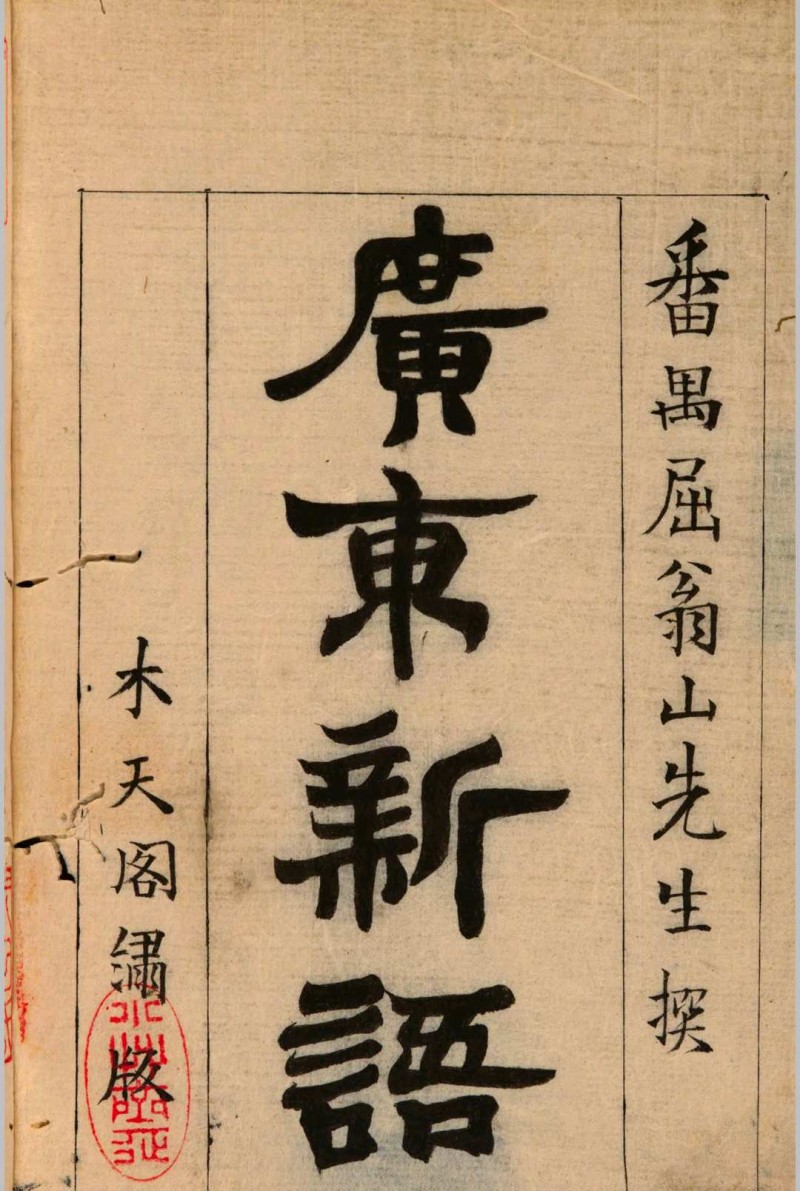 番禺屈翁山先生撰
廣東新語
木天閣繡版